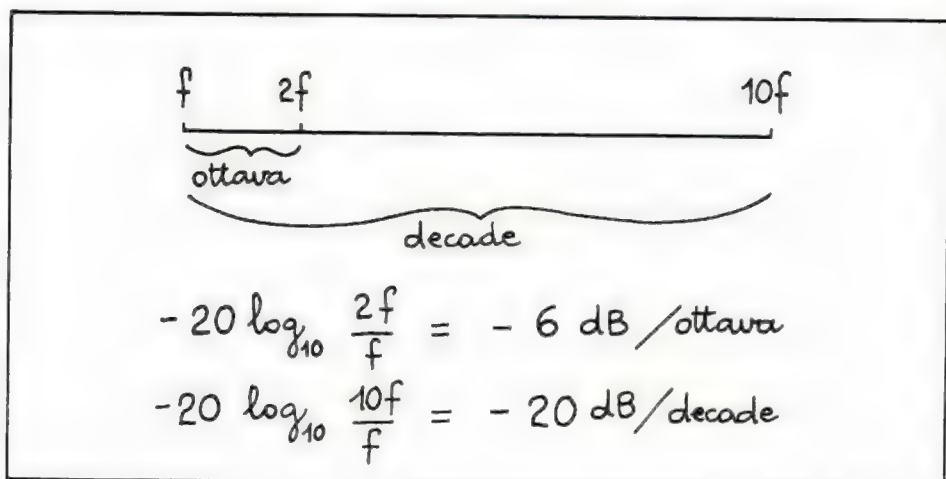 f 2f 10f
ottava
decade
-20 log₁₀ 2f/f = - 6 dB/ottava
-20 log₁₀ 10f/f = - 20 dB/decade